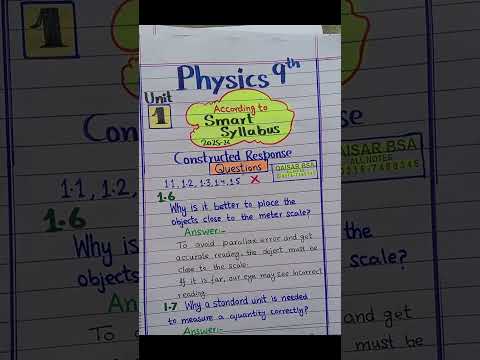 1
Physics 9th
Unit
1
According to
Smart
Syllabus
2025-26
Constructed Response
Questions
QAISAR BSA
ALL NOTES
1.1, 1.2, 1.3, 1.4, 1.5 X
1.6
Why is it better to place the
objects close to the meter scale?
Answer:-
To avoid parallax error and get
accurate reading, the object must be
close to the scale.
If it is far, our eye may see incorrect
reading.
1.7 Why a standard unit is needed
to measure a quantity correctly?
Answer:-